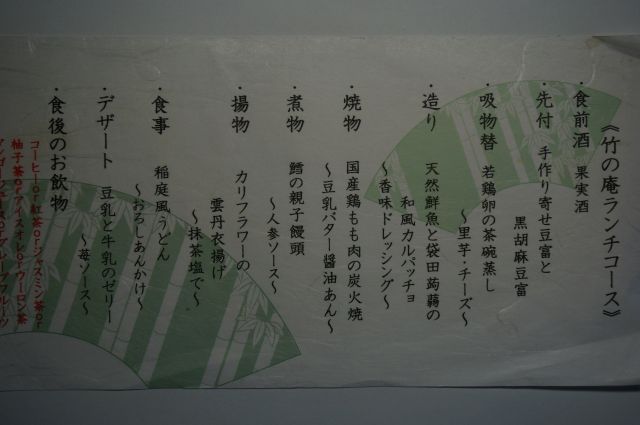 《竹の庵ランチコース》
・食前酒 果実酒
・先付 手作り寄せ豆富と
黒胡麻豆富
・吸物替 若鶏卵の茶碗蒸し
～里芋・チーズ～
・造り 天然鮮魚と袋田蒟蒻の
和風カルパッチョ
～香味ドレッシング～
・焼物 国産鶏もも肉の炭火焼
～豆乳バター醤油あん～
・煮物 鱈の親子饅頭
～人参ソース～
・揚物 カリフラワーの
雲丹衣揚げ
～抹茶塩で～
・食事 稲庭風うどん
～おろしあんかけ～
・デザート 豆乳と牛乳のゼリー
～苺ソース～
・食後のお飲物
コーヒーor紅茶orジャスミン茶or
柚子茶orアイスオレorウーロン茶